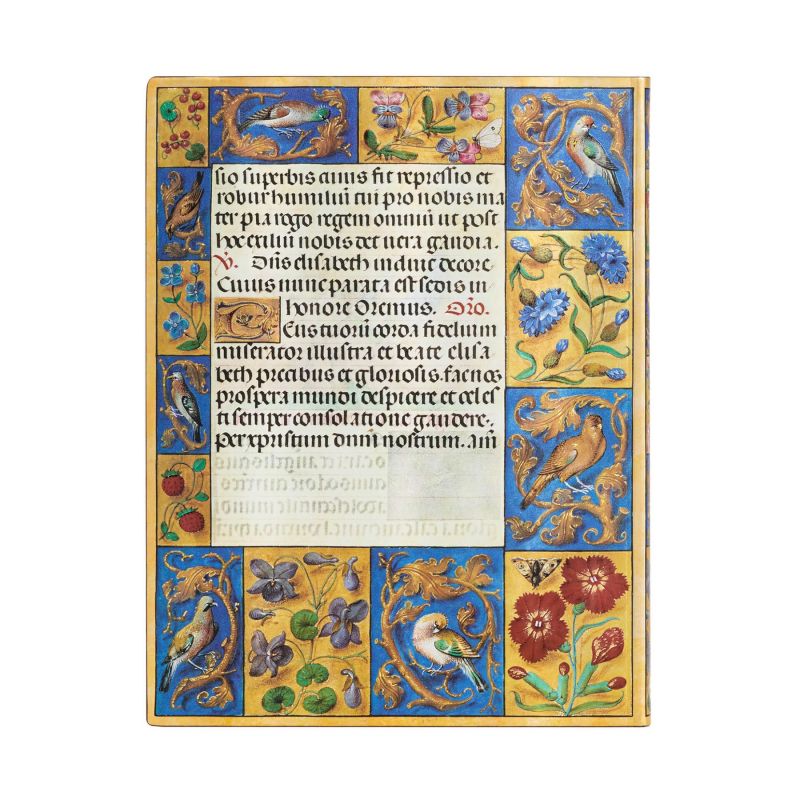 sio superbis cuius fit repressio et
robur humiliū tui pro nobis ma
ter pia rogo regem omniū ut post
hoc exiliū nobis det uera gaudia.
V. Dn̄s elisabeth induit decore.
Cuius nunc parata est sedis in
honore Oremus. Orō.
Eus tuorū corda fidelium
miserator illustra et beate elisa
beth precibus et gloriosis. fac nos
prospera mundi despicere et celes
ti semper consolatione gaudere.
Per xpristum dnm̄ nostrum. am̄